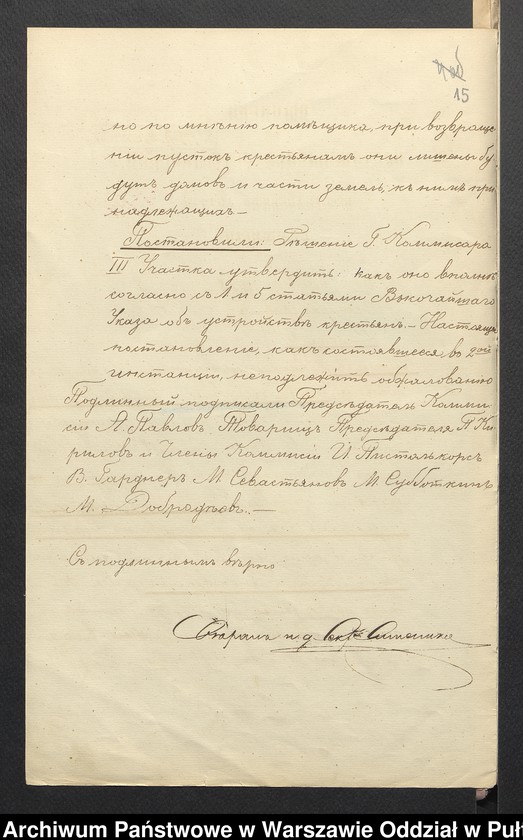 15
но по мнѣнію помѣщика, при возвраще
ніи пустокъ крестьянамъ они лишены бу
дутъ домовъ и части земель, къ нимъ при
надлежащихъ.—
Постановили: Рѣшеніе Г. Коммисара
III Участка утвердить: какъ оно вполнѣ
согласно съ 1 и 5 статьями Высочайшаго
Указа объ устройствѣ крестьянъ.— Настоящее
постановленіе, какъ состоявшееся, во 2ой
инстанціи, неподлежитъ обжалованію
Подлинный подписали Предсѣдатель Комми
сіи А. Павловъ, Товарищъ Предсѣдателя П. Ки
риловъ и Члены Коммисіи И Пистолькорсъ
В. Гарднеръ М. Севастьяновъ М Субботкинъ
М. Добродѣевъ.—
Съ подлиннымъ вѣрно
и. д.
Archiwum Państwowe w Warszawie Oddział w Puł